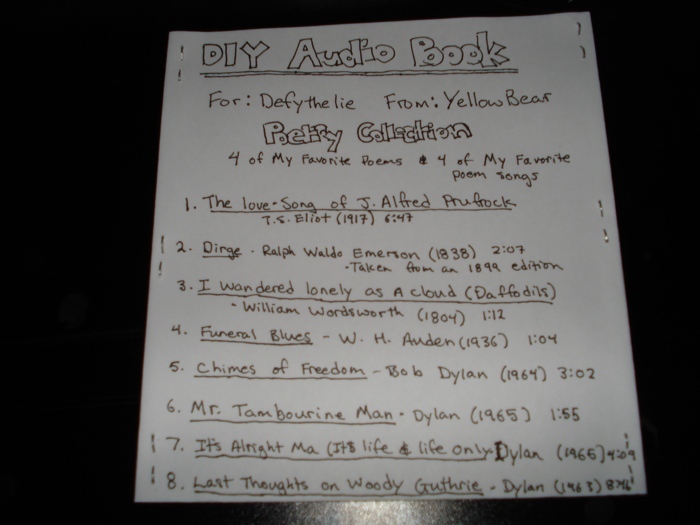 DIY Audio Book
For: Defythelie From: YellowBear
Poetry Collection
4 of My Favorite Poems & 4 of My Favorite
Poem songs
1. The love-Song of J. Alfred Prufrock
T.S. Eliot (1917) 6:47
2. Dirge - Ralph Waldo Emerson (1838) 2:07
- Taken from an 1899 edition
3. I wandered lonely as A cloud (Daffodils)
- William Wordsworth (1804) 1:12
4. Funeral Blues - W. H. Auden (1936) 1:04
5. Chimes of Freedom - Bob Dylan (1964) 3:02
6. Mr. Tambourine Man - Dylan (1965) 1:55
7. It's Alright Ma (It's life & life only - Dylan (1965) 4:09
8. Last Thoughts on Woody Guthrie - Dylan (1963)